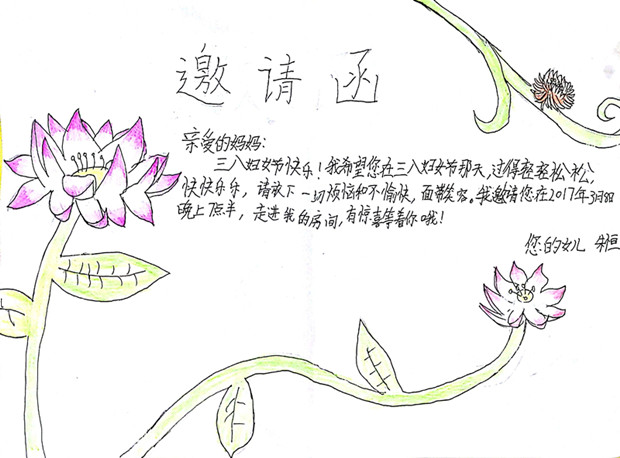 邀请函
亲爱的妈妈:
三八妇女节快乐!我希望您在三八妇女节那天,过得轻轻松松,
快快乐乐,请放下一切烦恼和不愉快,面带笑容。我邀请您在2017年3月8日
晚上7点半,走进我的房间,有惊喜等着你哦!
您的女儿